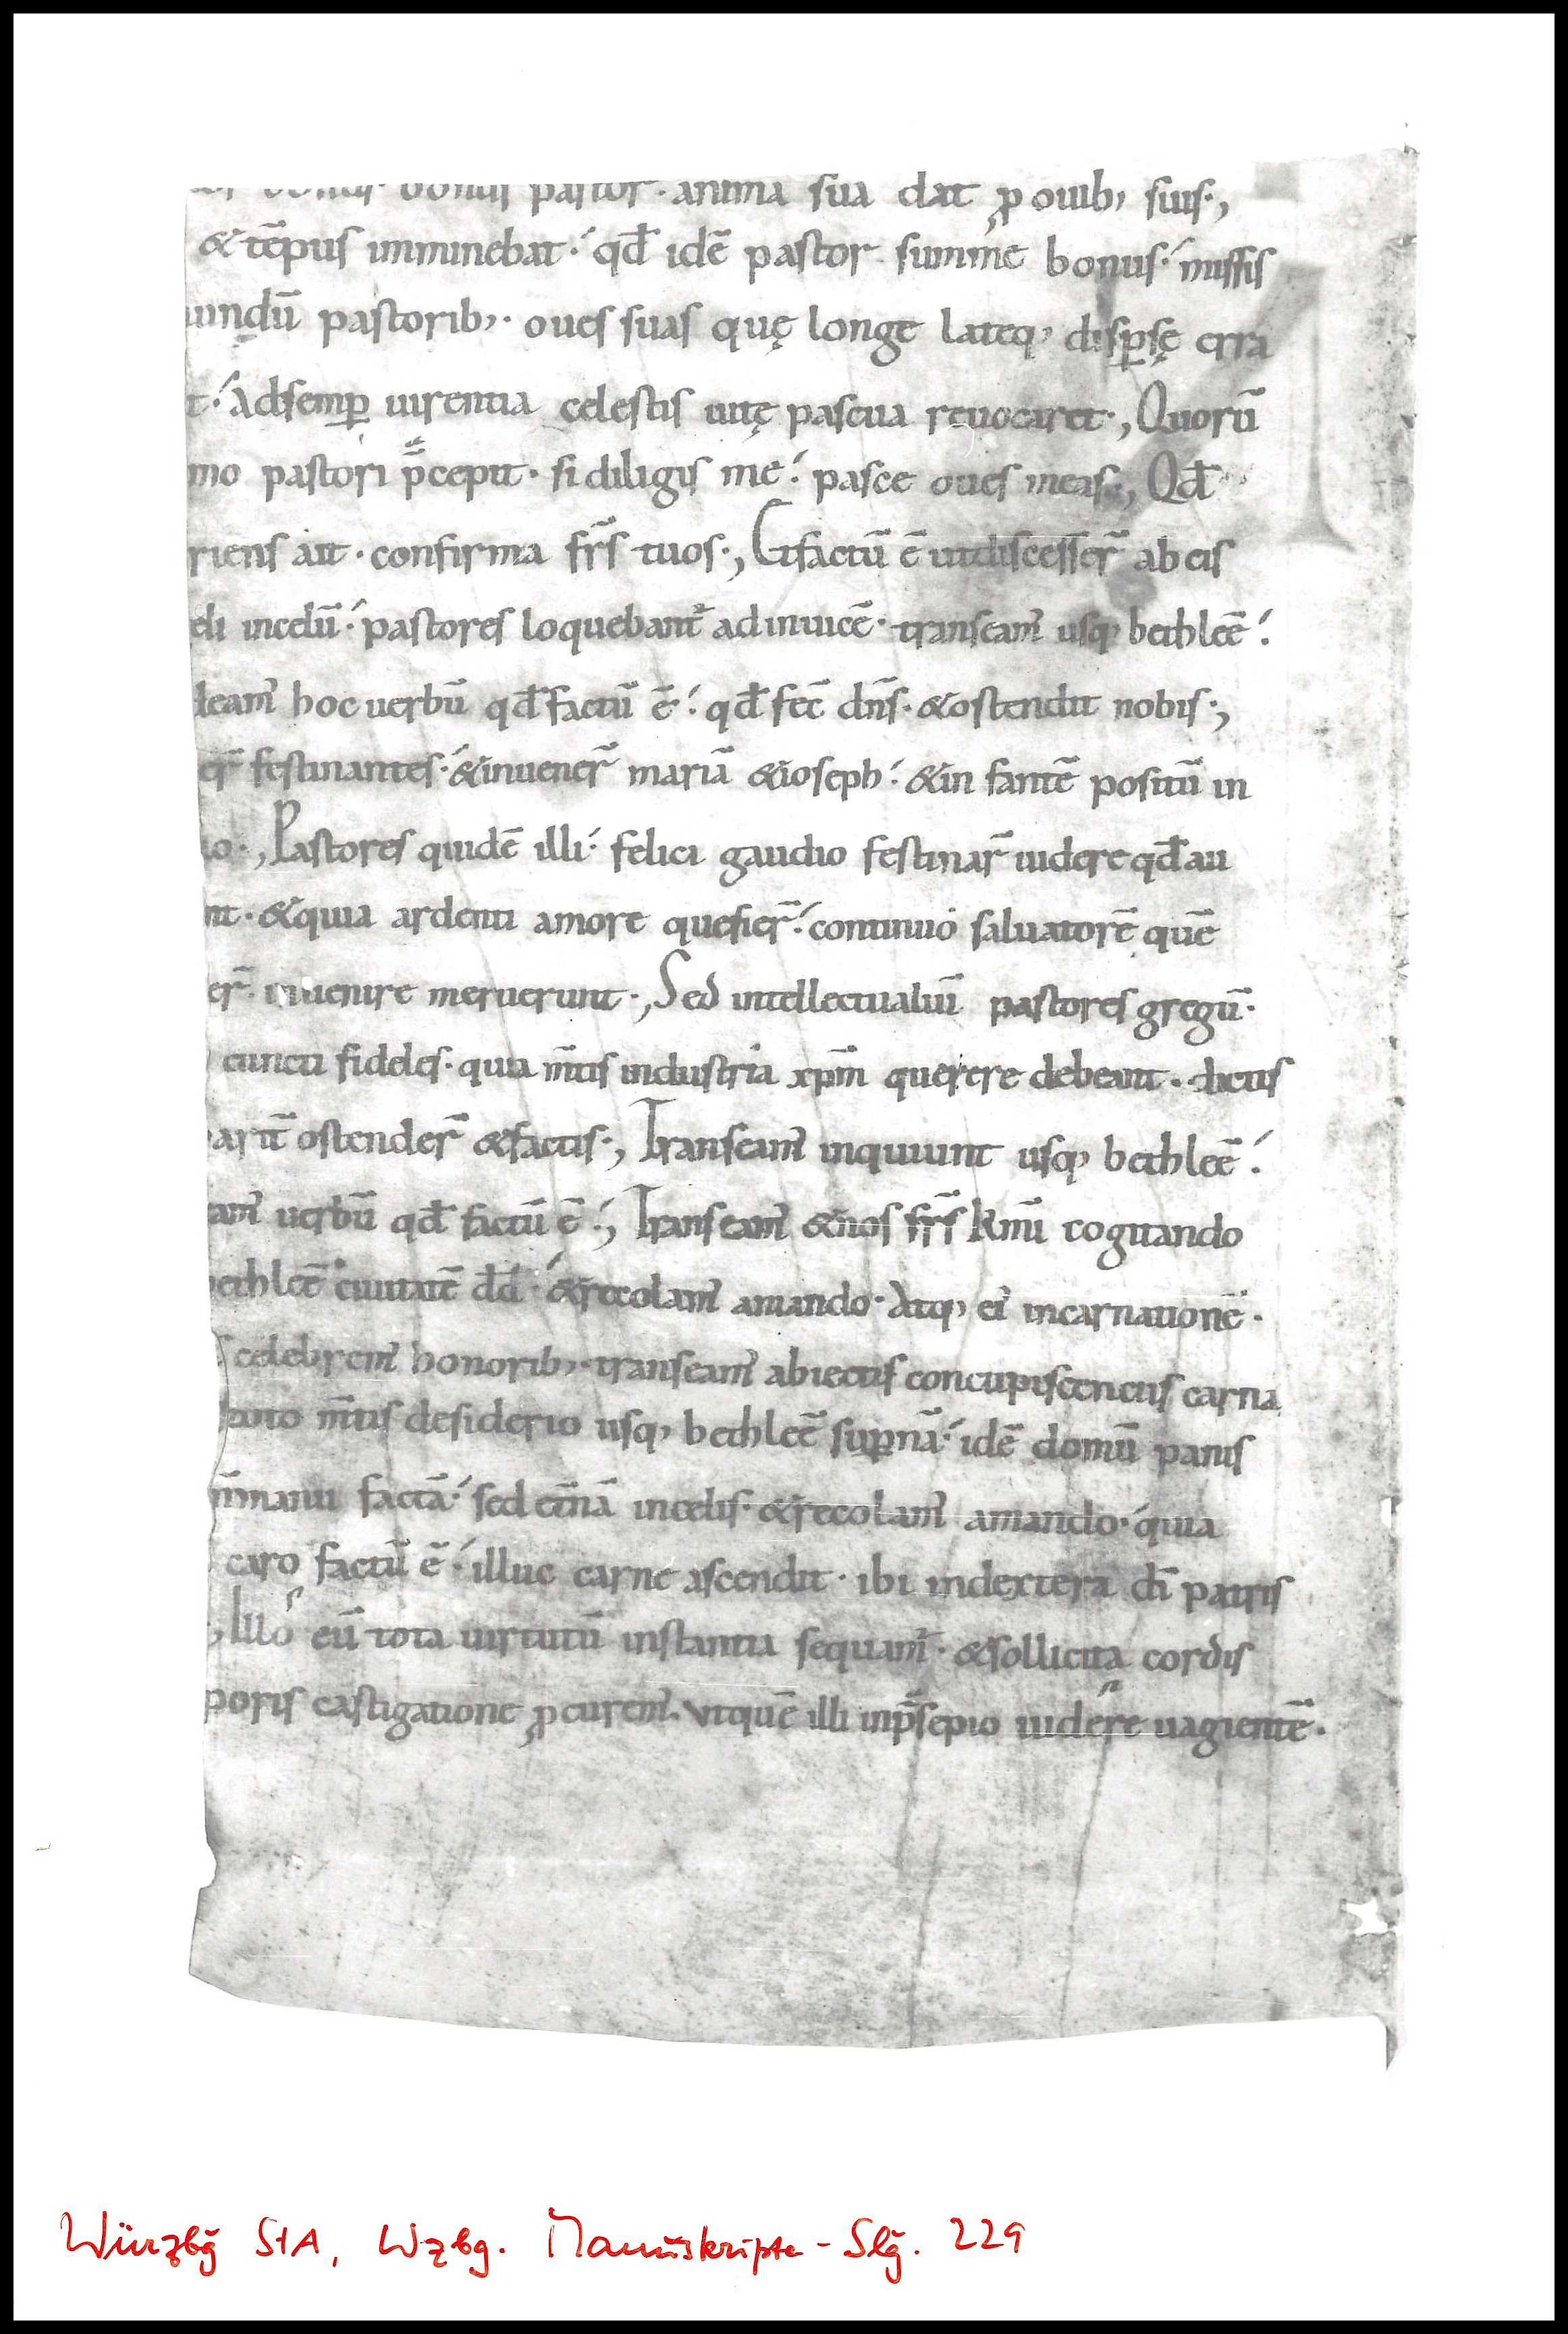 bonus pastor · anima sua dat ꝓ ouib; suis·,
& tēpus imminebat·́ qđ idē pastor summe bonus·́ missis
undū pastorib;· oues suas quę longe lateq; disp̱sę erra
t·́ Adsemp̱ uirentia celestis uitę pascua reuocaret·, Quorū
mo pastori p̄cepit · si diligis me·́ pasce oues meas·, Qđ
riens ait · confirma fr̄s tuos·, Et factū ē ut discesser̄ ab eis
eli incelū·́ pastores loquebant᷑ adinuicē· transeam᷒ usq; bethleē·́
deam᷒ hoc uerbū qđ factū ē·́ qđ fec̄ dn̄s· & ostendit nobis·,
er̄ festinantes·́ & inuener̄ mariā & ioseph·́ & in fantē positū in
io·, Pastores quidē illi·́ felici gaudio festinar̄ uidere qđ au
nt· & quia ardenti amore quesier̄·́ continuo saluatorē quē
er̄· inuenire meruerunt·, Sed intellectualiū pastores gregū·
cuncti fideles· quia m̄tis industria xp̄m querere debeant· dictis
arit̄ ostender̄ & factis·, Transeam᷒ inquiunt usq; bethleē·́
am᷒ uerbū qđ factū ē·́, Transeam᷒ & nos fr̄s kmī cogitando
bethleē ciuitatē dd̄·́ & recolam᷒ amando· Atq; ei᷒ incarnationē·
s celebrem᷒ honorib;· transeam᷒ abiectis concupiscenciis carna
toto m̄tis desiderio usq; bethleē sup̱nā·́ idē domū panis
n̄manu factā·́ sed et̄nā incelis· & recolam᷒ amando·́ quia
caro factū ē·́ illuc carne ascendit· ibi indextera dī patris
, Illo eū tota uirtutū instantia sequam᷒· & sollicita cordis
poris castigatione ꝓcurem᷒· vtquē illi inp̄sepio uidere uagientē·
Würzbg StA, Wzbg. Manuskripte-Slg. 229